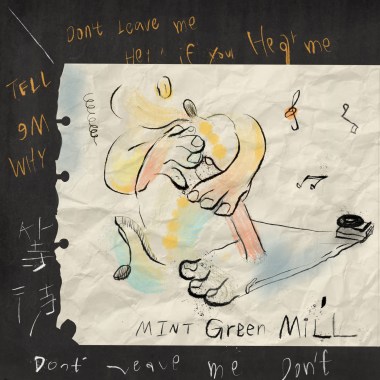 Dont Leave me
if you Hear me
TELL
9M
WHY
等
待
MINT Green MiLL
Dont Leave me Don't